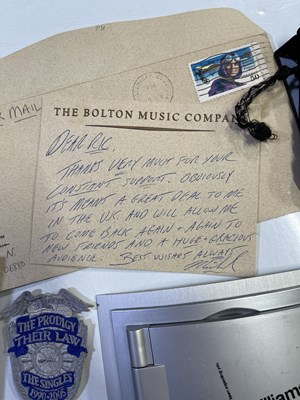 MAIL
50
THE BOLTON MUSIC COMPANY
DEAR RIC,
THANKS VERY MUCH FOR YOUR
CONSTANT SUPPORT. OBVIOUSLY
IT'S MEANT A GREAT DEAL TO ME
IN THE U.K. AND WILL ALLOW ME
TO COME BACK AGAIN + AGAIN TO
NEW FRIENDS AND A HUGE + GRACIOUS
AUDIENCE. BEST WISHES ALWAYS
THE PRODIGY
THEIR LAW
THE SINGLES
1990-2005